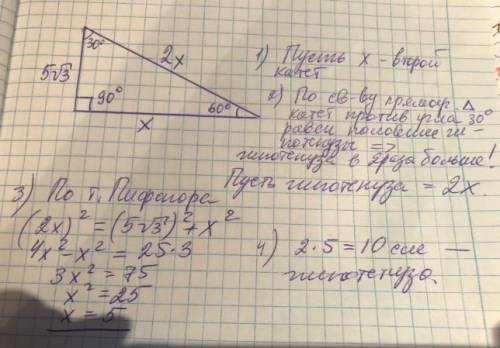 30°
2x
5√3
90°
60°
x
1) Пусть x - второй
катет
2) По св-ву прямоуг. △
катет против угла 30°
равен половине ги-
потенузы =>
гипотенуза в 2 раза больше!
Пусть гипотенуза = 2x.
3) По т. Пифагора
(2x)² = (5√3)² + x²
4x² - x² = 25·3
3x² = 75
x² = 25
x = 5
4) 2·5 = 10 см —
гипотенуза.